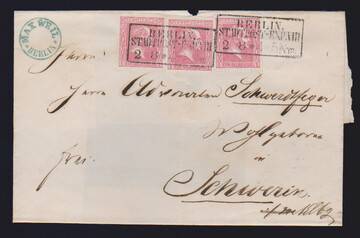 MAX WEIL
BERLIN
BERLIN,
STADTPOST-EXP.
2 8
BERLIN.
STADTPOST-EXP.
2 8
Herrn
Herrn Advocaten Schwerdtfeger
Wohlgeboren
in
frei.
Schwerin,